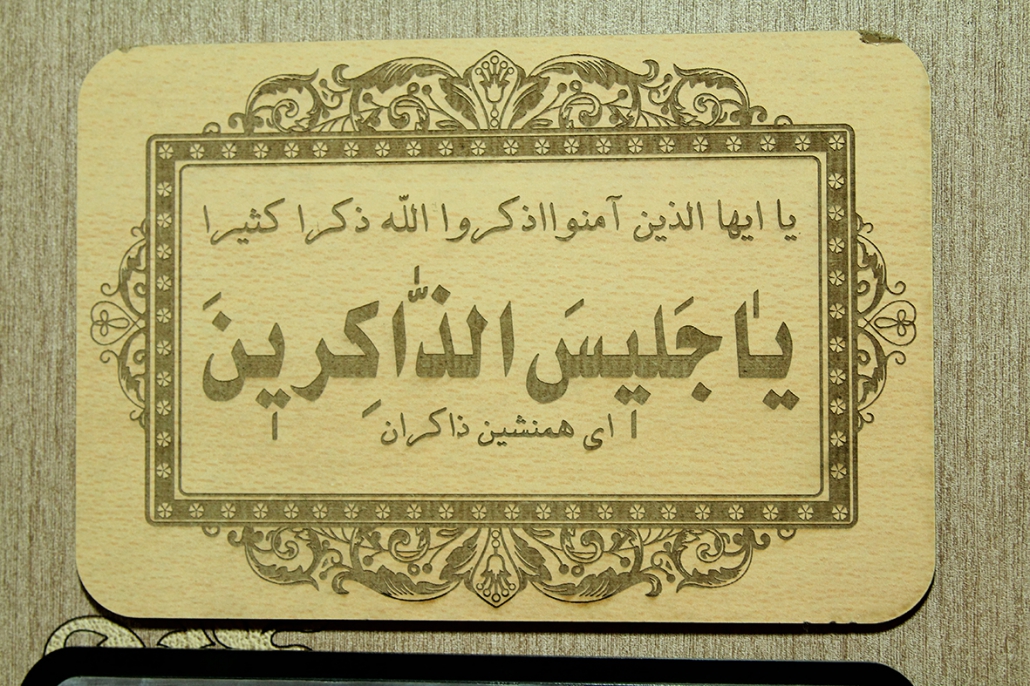 یا ایها الذین آمنوااذکروا اللّه ذکرا کثیرا
یاٰ جَلیسَ الذّاٰکِرینَ
ای همنشین ذاکران